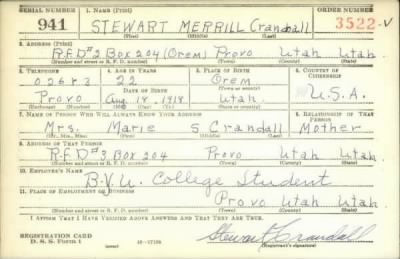 SERIAL NUMBER 1. NAME (Print) ORDER NUMBER
941 STEWART MERRILL Crandall 3522-V
(First) (Middle) (Last)
2. ADDRESS (Print)
R.F.D#2 Box 204 (Orem) Provo Utah Utah
(Number and street or R. F. D. number) (Town) (County) (State)
3. TELEPHONE 4. AGE IN YEARS 5. PLACE OF BIRTH 6. COUNTRY OF CITIZENSHIP
026R3 22 Orem
Provo Aug 14, 1918 Utah U.S.A.
(Exchange) (Number) (Mo.) (Day) (Yr.) (State or country)
7. NAME OF PERSON WHO WILL ALWAYS KNOW YOUR ADDRESS 8. RELATIONSHIP OF THAT PERSON
Mrs. Marie S Crandall Mother
(Mr., Mrs., Miss) (First) (Middle) (Last)
9. ADDRESS OF THAT PERSON
R.F.D#3 Box 204 Provo Utah Utah
(Number and street or R. F. D. number) (Town) (County) (State)
10. EMPLOYER'S NAME
B.Y.U. College Student
11. PLACE OF EMPLOYMENT OR BUSINESS
Provo Utah Utah
(Number and street or R. F. D. number) (Town) (County) (State)
I AFFIRM THAT I HAVE VERIFIED ABOVE ANSWERS AND THAT THEY ARE TRUE.
REGISTRATION CARD
D. S. S. Form 1 Stewart Crandall
(Registrant's signature)